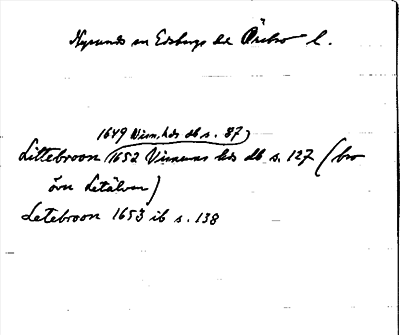 Nysunds sn Edsbergs hd Örebro l.
1649 Visn. hds db s. 87)
Littebroon 1652 Visnums hds db s. 127 (bro
över Letälven)
Letebroon 1653 ib s. 138